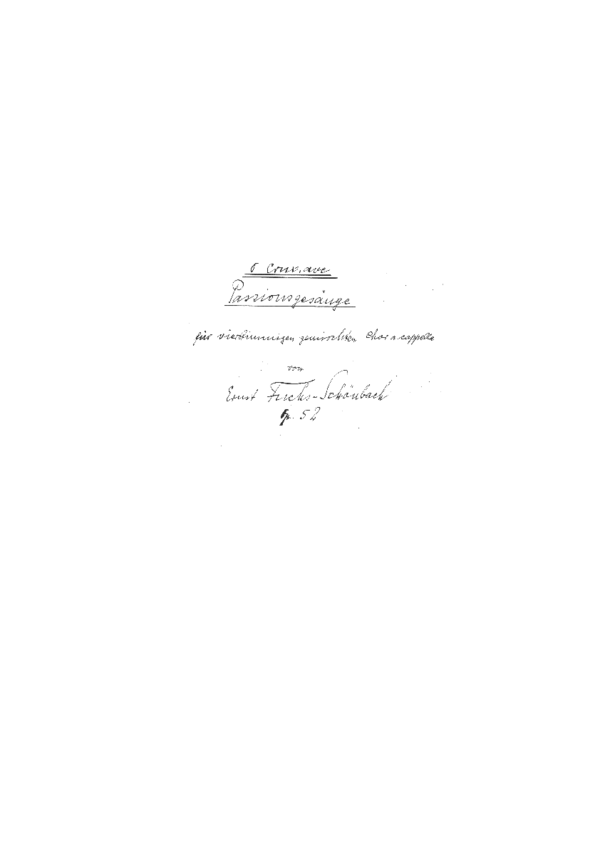 O Crux, ave
Passionsgesänge
für vierstimmigen gemischten Chor a cappella
von
Ernst Fuchs-Schönbach
Op. 52